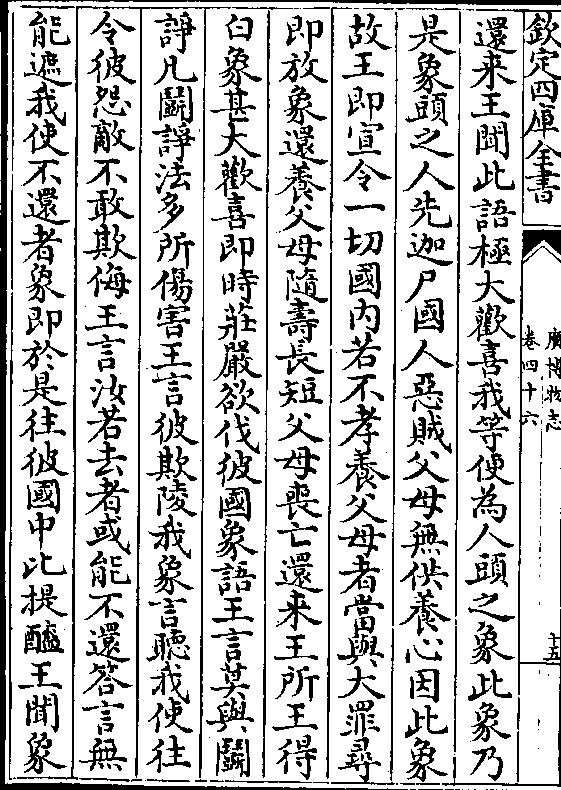 欽定四庫全書
廣博物志
卷四十六
十五
還来王聞此語極大歡喜我等便為人頭之象此象乃
是象頭之人先迦尸國人惡賊父母無供養心因此象
故王即宣令一切國内若不孝養父母者當與大罪尋
即放象還養父母隨壽長短父母喪亡還来王所王得
白象甚大歡喜即時莊嚴欲伐彼國象語王言莫與鬭
諍凡鬭諍法多所傷害王言彼欺陵我象言聽我使往
令彼怨敵不敢欺侮王言汝若去者或能不還答言無
能遮我使不還者象即於是往彼國中比提醯王聞象